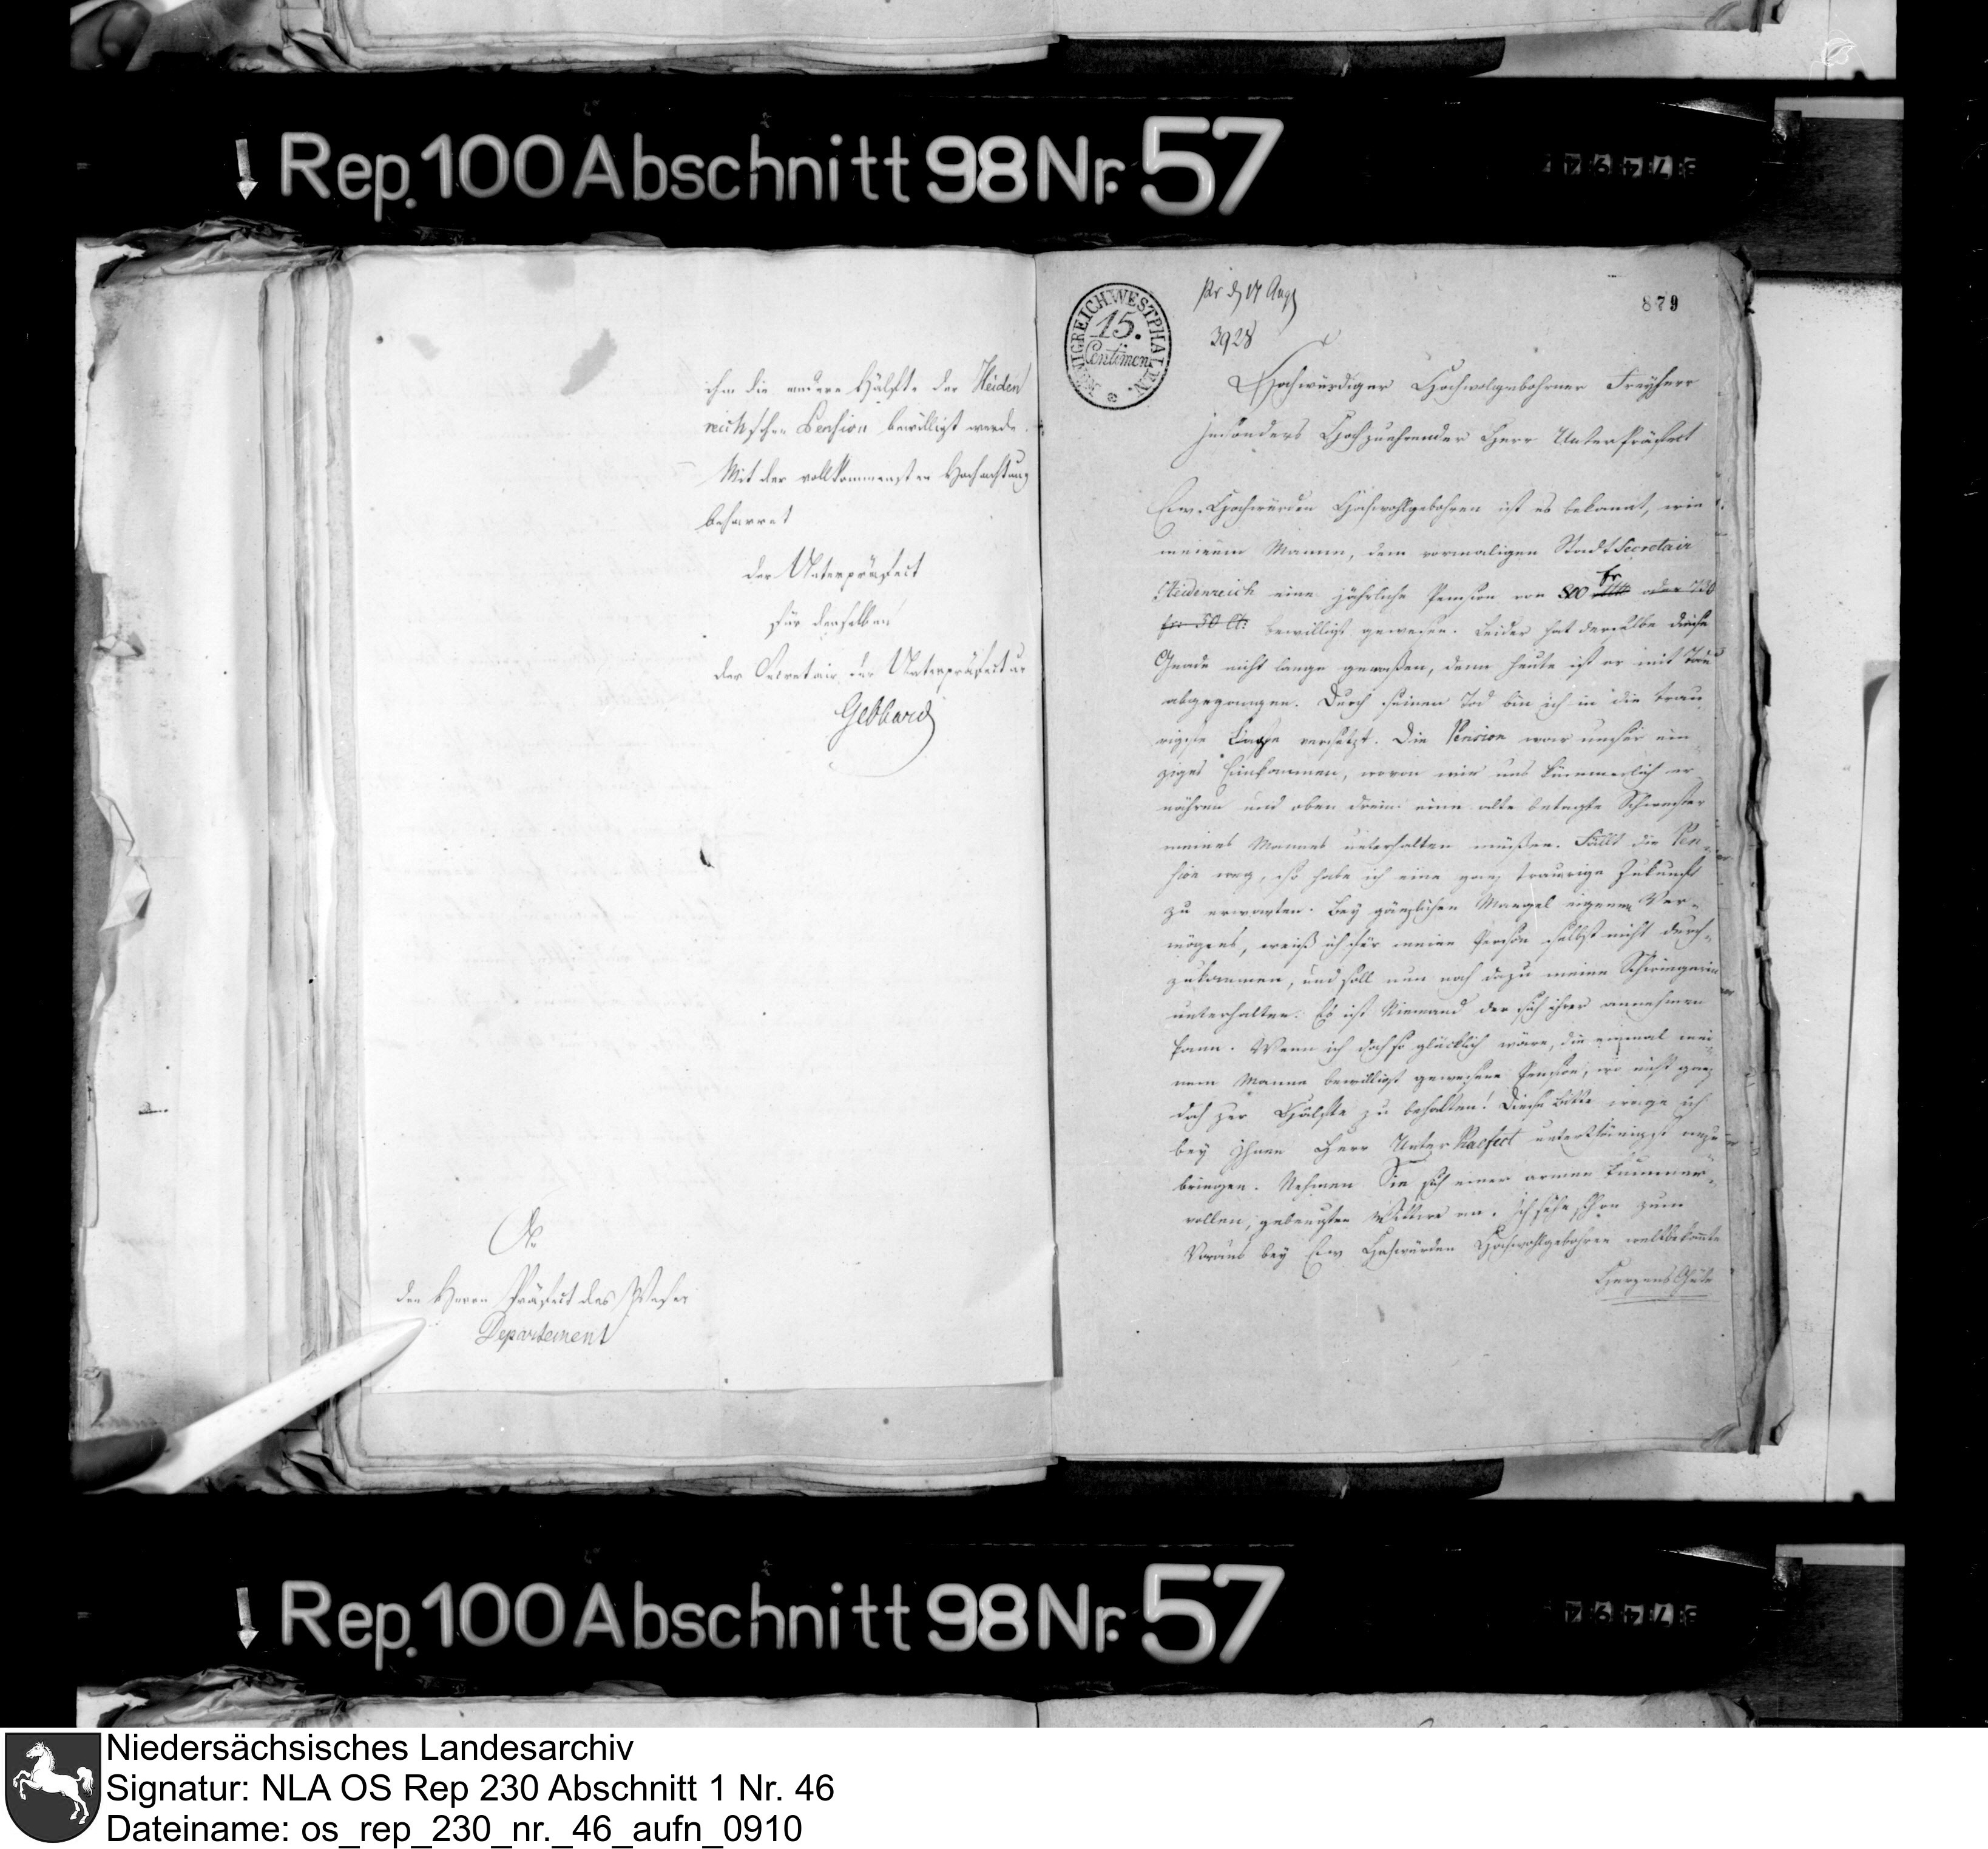 Rep. 100 Abschnitt 98 Nr. 57
ihm die andere Hälfte der Heiden
reichschen Pension bewilligt werde.
Mit der vollkommensten Hochachtung
beharret
der Unterpräfect
für denselben
der Secretair der Unterpräfectur
Gebhard
An
den Herrn Präfect des Weser
Departement
KÖNIGREICH WESTPHALEN.
15.
Centimen
879
3928
Hochwürdiger Hochwolgebohrner Freyherr
Hochzuehrender Herr Unterpräfect
Ew. Hochwürden Hochwohlgebohren ist es bekannt, wie
meinem Manne, dem vormaligen Stadt Secretair
Heidenreich eine jährliche Pension von 800 fr oder
fr. 50 Ct: bewilligt gewesen. Leider hat derselbe diese
Gnade nicht lange genoßen, denn heute ist er mit Tode
abgegangen. Durch seinen Tod bin ich in die trau
rigste Lage versetzt. Die Pension war unser ein
ziges Einkommen, wovon wir uns kümmerlich er
nähren und oben drein eine alte betagte Schwester
meines Mannes unterhalten müßen. Fällt die Pen-
sion weg, so habe ich eine ganz traurige Zukunft
zu erwarten. Bey gänzlichen Mangel eigenen Ver-
mögens, weiß ich für meine Person selbst nicht durch-
zukommen, und soll nun noch dazu meine Schwiegerin
unterhalten. Es ist Niemand der sich ihrer annehmen
kann. Wenn ich doch so glücklich wäre, die einmal mei
nem Manne bewilligt gewesene Pension, wo nicht ganz
doch zur Hälfte zu behalten! Diese Bitte wage ich
bey Ihnen Herr Unter Praefect unterthänigst anzu
bringen. Nehmen Sie sich einer armen kummer-
vollen, gebeugten Wittwe an. Ich sehe schon zum
Voraus bey Ew Hochwürden Hochwohlgebohren weltbekannte
Herzens Güte
Rep. 100 Abschnitt 98 Nr. 57
Niedersächsisches Landesarchiv
Signatur: NLA OS Rep 230 Abschnitt 1 Nr. 46
Dateiname: os_rep_230_nr._46_aufn_0910